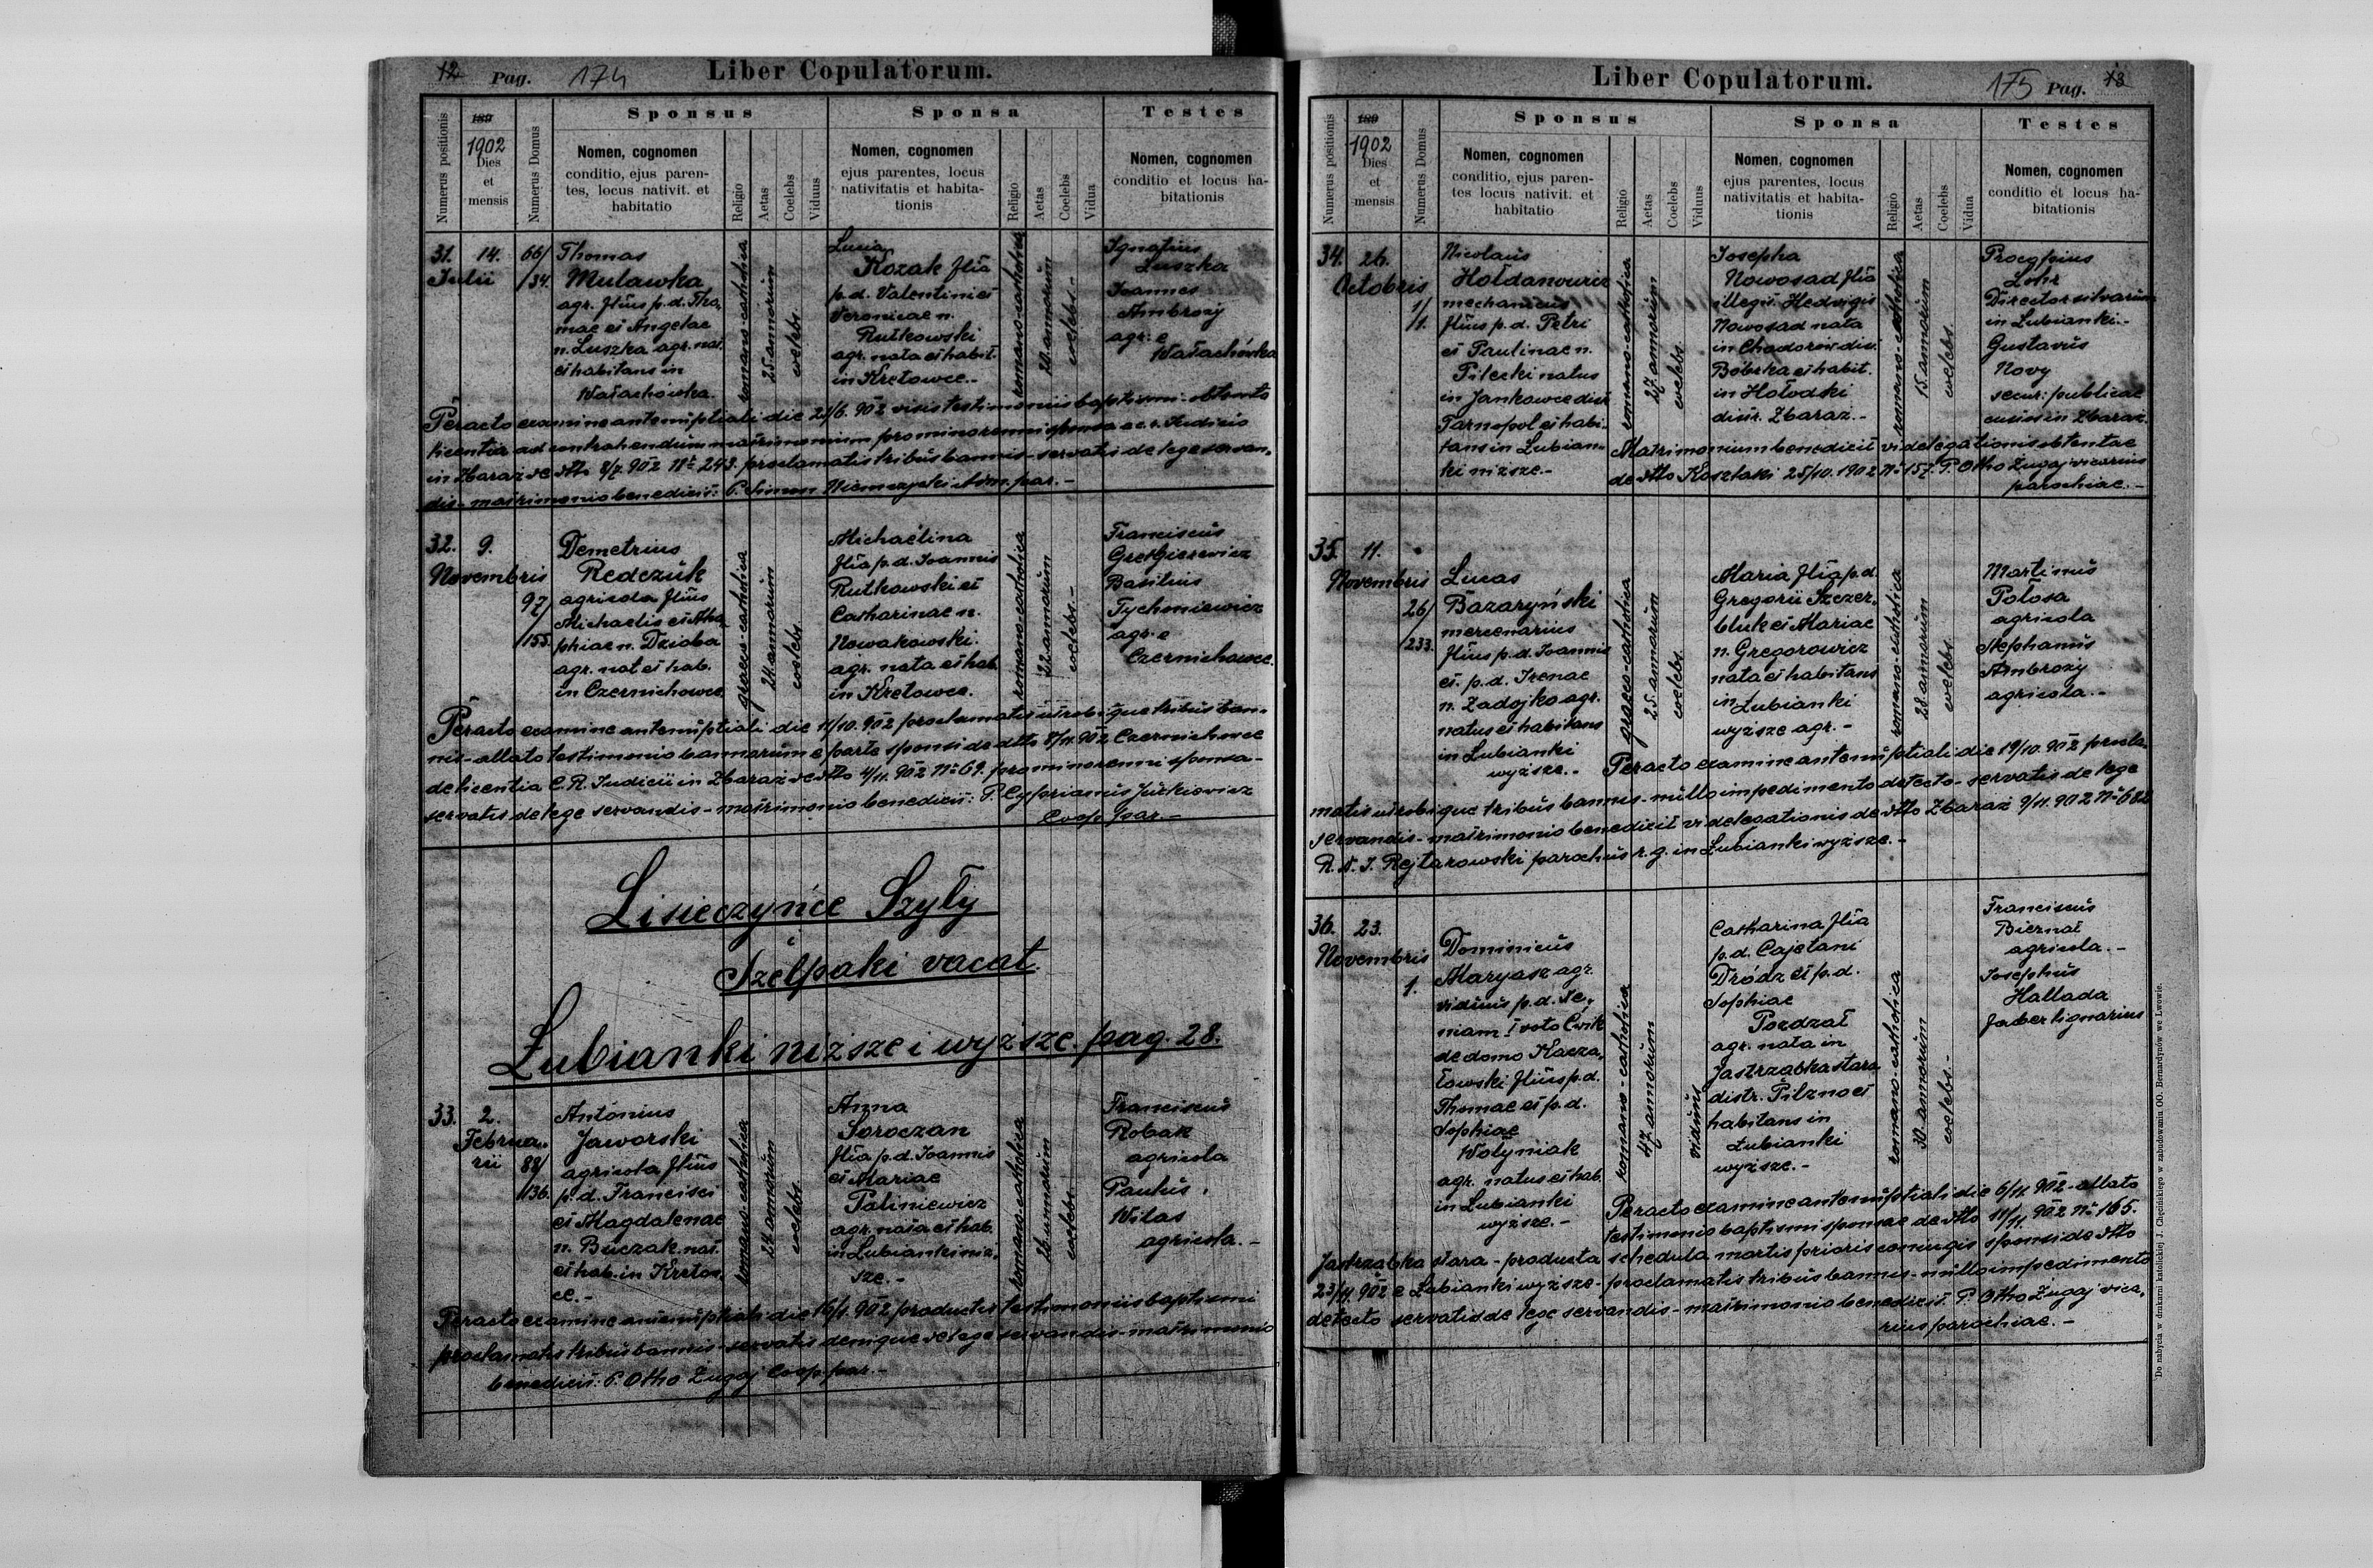 12 Pag. 174 Liber Copulatorum.
Numerus positionis
189
1902
Dies
et
mensis
Numerus Domus
Sponsus
Nomen, cognomen
conditio, ejus paren-
tes, locus nativit. et
habitatio
Religio
Aetas
Coelebs
Viduus
Sponsa
Nomen, cognomen
ejus parentes, locus
nativitatis et habita-
tionis
Religio
Aetas
Coelebs
Vidua
Testes
Nomen, cognomen
conditio et locus ha-
bitationis
31. 14.
Julii
66/
/34.
Thomas
Mulawka
agr. filius p. d. Tho,
mae et Angelae
n. Luszka agr. nat.
et habitans in
Wałachówka.
romano-catholica
25 annorum
coelebs
Lucia
Kozak filia
p. d. Valentini et
Veronicae n.
Rutkowski
agr. nata et habit.
in Kretowce.-
romano-catholica
20 annorum
coelebs.-
Ignatius
Luszka
Joannes
Ambrozy
agr: e
Wałachówka
Peracto examine antenuptiali die 21/6. 902 visis testimoniis baptismi - obtenta
licentia ad contrahendum matrimonium pro minorenni sponsa a c. r. Judicio
in Zbaraż de dtto 8/7. 902 No 243. proclamatis tribus bannis - servatis de lege servan,
dis - matrimonio benedicit: P. Simon Niemczycki Adm. par.-
32. 9.
Novembris
97/
/155.
Demetrius
Redczuk
agricola filius
Michaelis et Aha,
phiae n. Dzioba
agr. nat et hab.
in Czernichowce
graeco-catholica
24 annorum
coelebs
Michaëlina
filia p. d. Joannis
Rutkowski et
Catharinae n.
Nowakowski.
agr. nata et hab.
in Kretowce.
romano-catholica
22 annorum
coelebs.-
Franciscus
Basilius
Tychoniewicz
agr. e
Czernichowce.
Peracto examine antenuptiali die 11/10. 902 proclamatis utrobique tribus ban-
nis - allato testimonio bannorum e parte sponsi de dtto 8/11. 902 Czernichowce
de licentia C. R. Judicii in Zbaraż de dtto 4/11. 902 No 69. pro minorenni sponsa -
servatis de lege servandis - matrimonio benedicit: P. Cyprianus Jurkiewicz
Coop. par.-
Lisieczyńce Szyły
Szelpaki vacat.
Łubianki niższe i wyższe. pag. 28.
33. 2.
Februa,
rii
88/
/136.
Antonius
Jaworski
agricola filius
p. d. Francisci
et Magdalenae
n. Buczak nat.
et hab. in Kretow,
ce.-
romano-catholica
24 annorum
coelebs
Anna
Soroczan
filia p. d. Joannis
et Mariae
Paliniewicz
agr. nata et hab.
in Łubianki niż,
sze.-
romano-catholica
26 annorum
coelebs
Franciscus
Robak
agricola
Paulus
Witas
agricola.-
Peracto examine antenuptiali die 16/1. 902 productis testimoniis baptismi
proclamatis tribus bannis - servatis denique de lege servandis - matrimonio
benedicit: P. Otho Zugaj Coop. par.-
Liber Copulatorum. 175 Pag. 13
Numerus positionis
189
1902
Dies
et
mensis
Numerus Domus
Sponsus
Nomen, cognomen
conditio, ejus paren-
tes locus nativit. et
habitatio
Religio
Aetas
Coelebs
Viduus
Sponsa
Nomen, cognomen
ejus parentes, locus
nativitatis et habita-
tionis
Religio
Aetas
Coelebs
Vidua
Testes
Nomen, cognomen
conditio et locus ha-
bitationis
34. 26.
Octobris
1/
/1.
Nicolaus
Hołdanowicz
mechanicus
filius p. d. Petri
et Paulinae n.
Pilecki natus
in Jankowce distr
Tarnopol et habi-
tans in Łubian-
ki niższe.-
romano-catholica
27 annorum
coelebs
Josepha
Nowosad filia
illegit. Hedvigis
Nowosad nata
in Chodorów dis.
Bóbrka et habit.
in Hołodki
distr. Zbaraż.-
romano-catholica
15 annorum
coelebs.
Procopius
Lohr
Director silvarum
in Łubianki.-
Gustavus
Novy
secur: publicae
custos in Zbaraż.
Matrimonium benedicit vi delegationis obtentae
de dtto Kosztaki 25/10. 1902 No 157. P. Otho Zugaj vicarius
parochiae.-
35. 11.
Novembris
26/
/233.
Lucas
Bazaryński
mercenarius
filius p. d. Joannis
et. p. d. Irenae
n. Zadojko agr.
natus et habitans
in Łubianki
wyższe.-
graeco-catholica
25 annorum
coelebs
Maria filia p. d.
Gregorii Szczer,
bluk et Mariae
n. Gregorowicz
nata et habitans
in Łubianki
wyższe agr.-
romano-catholica
28 annorum
coelebs
Martinus
Połosa
agricola
Stephanus
Ambrozy
agricola.-
Peracto examine antenuptiali die 19/10. 902 procla,
matis utrobique tribus bannis - nullo impedimento detecto - servatis de lege
servandis - matrimonio benedicit vi delegationis de dtto Zbaraż 9/11. 902 No 682
R. d. J. Rejtarowski parochus r. g. in Łubianki wyższe.-
36. 23.
Novembris
1.
Dominicus
Maryasz agr.
viduus p. d. Xe,
niam I voto Ćwik
de domo Kacza,
łowski filius p. d.
Thomae et p. d.
Sophiae
Wołyniak
agr. natus et hab.
in Łubianki
wyższe.-
romano-catholica
47 annorum
viduus
Catharina filia
p. d. Cajetani
Dródz et p. d.
Sophiae
agr. nata in
Jastrząbka stara
distr. Pilzno et
habitans in
Łubianki
wyższe.-
romano-catholica
30 annorum
coelebs.-
Franciscus
Biernat
agricola.-
Josephus
Hallada
faber lignarius
Peracto examine antenuptiali die 6/11. 902 - allato
testimonio baptismi sponsae de dtto 11/11. 902 No 165.
Jastrząbka stara - producta schedula mortis prioris coniugis sponsi de dtto
23/11. 902 e Łubianki wyższe - proclamatis tribus bannis - nullo impedimento
detecto servatis de lege servandis - matrimonio benedicit. P. Otho Zugaj vica,
rius parochiae.-
Do nabycia w drukarni katolickiej J. Chęcińskiego w zabudowaniu OO. Bernardynów we Lwowie.